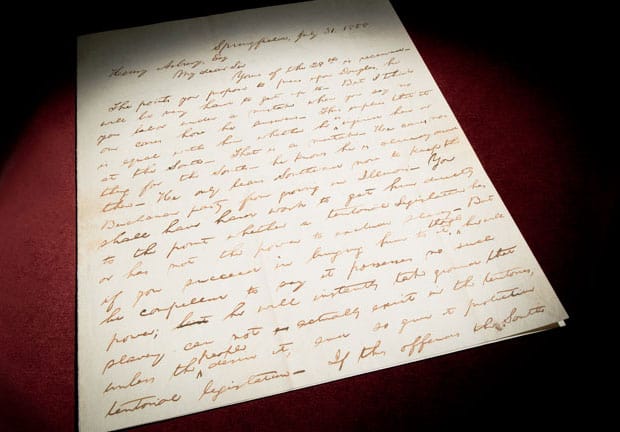 Springfield, July 31, 1858
Henry Asbury, Esq
My dear Sir
Yours of the 28th is received.
The points you propose to press upon Douglas, he
will be very hard to get up to. But I think
you labor under a mistake when you say no
one cares how he answers. This implies that it
is equal with him whether he is injured here or
at the South. That is a mistake. He cares no-
thing for the South - he knows he is already dead
there. He only leans Southward now to keep the
Buchanan party from growing in Illinois. You
shall have hard work to get him directly
to the point whether a territorial Legislature has
or has not the power to exclude slavery. But
if you succeed in bringing him to it, though he will
be compelled to say it possesses no such
power; he will instantly take ground that
slavery can not actually exist in the territories,
unless the people desire it, and so give it protective
territorial legislation. If this offends the South